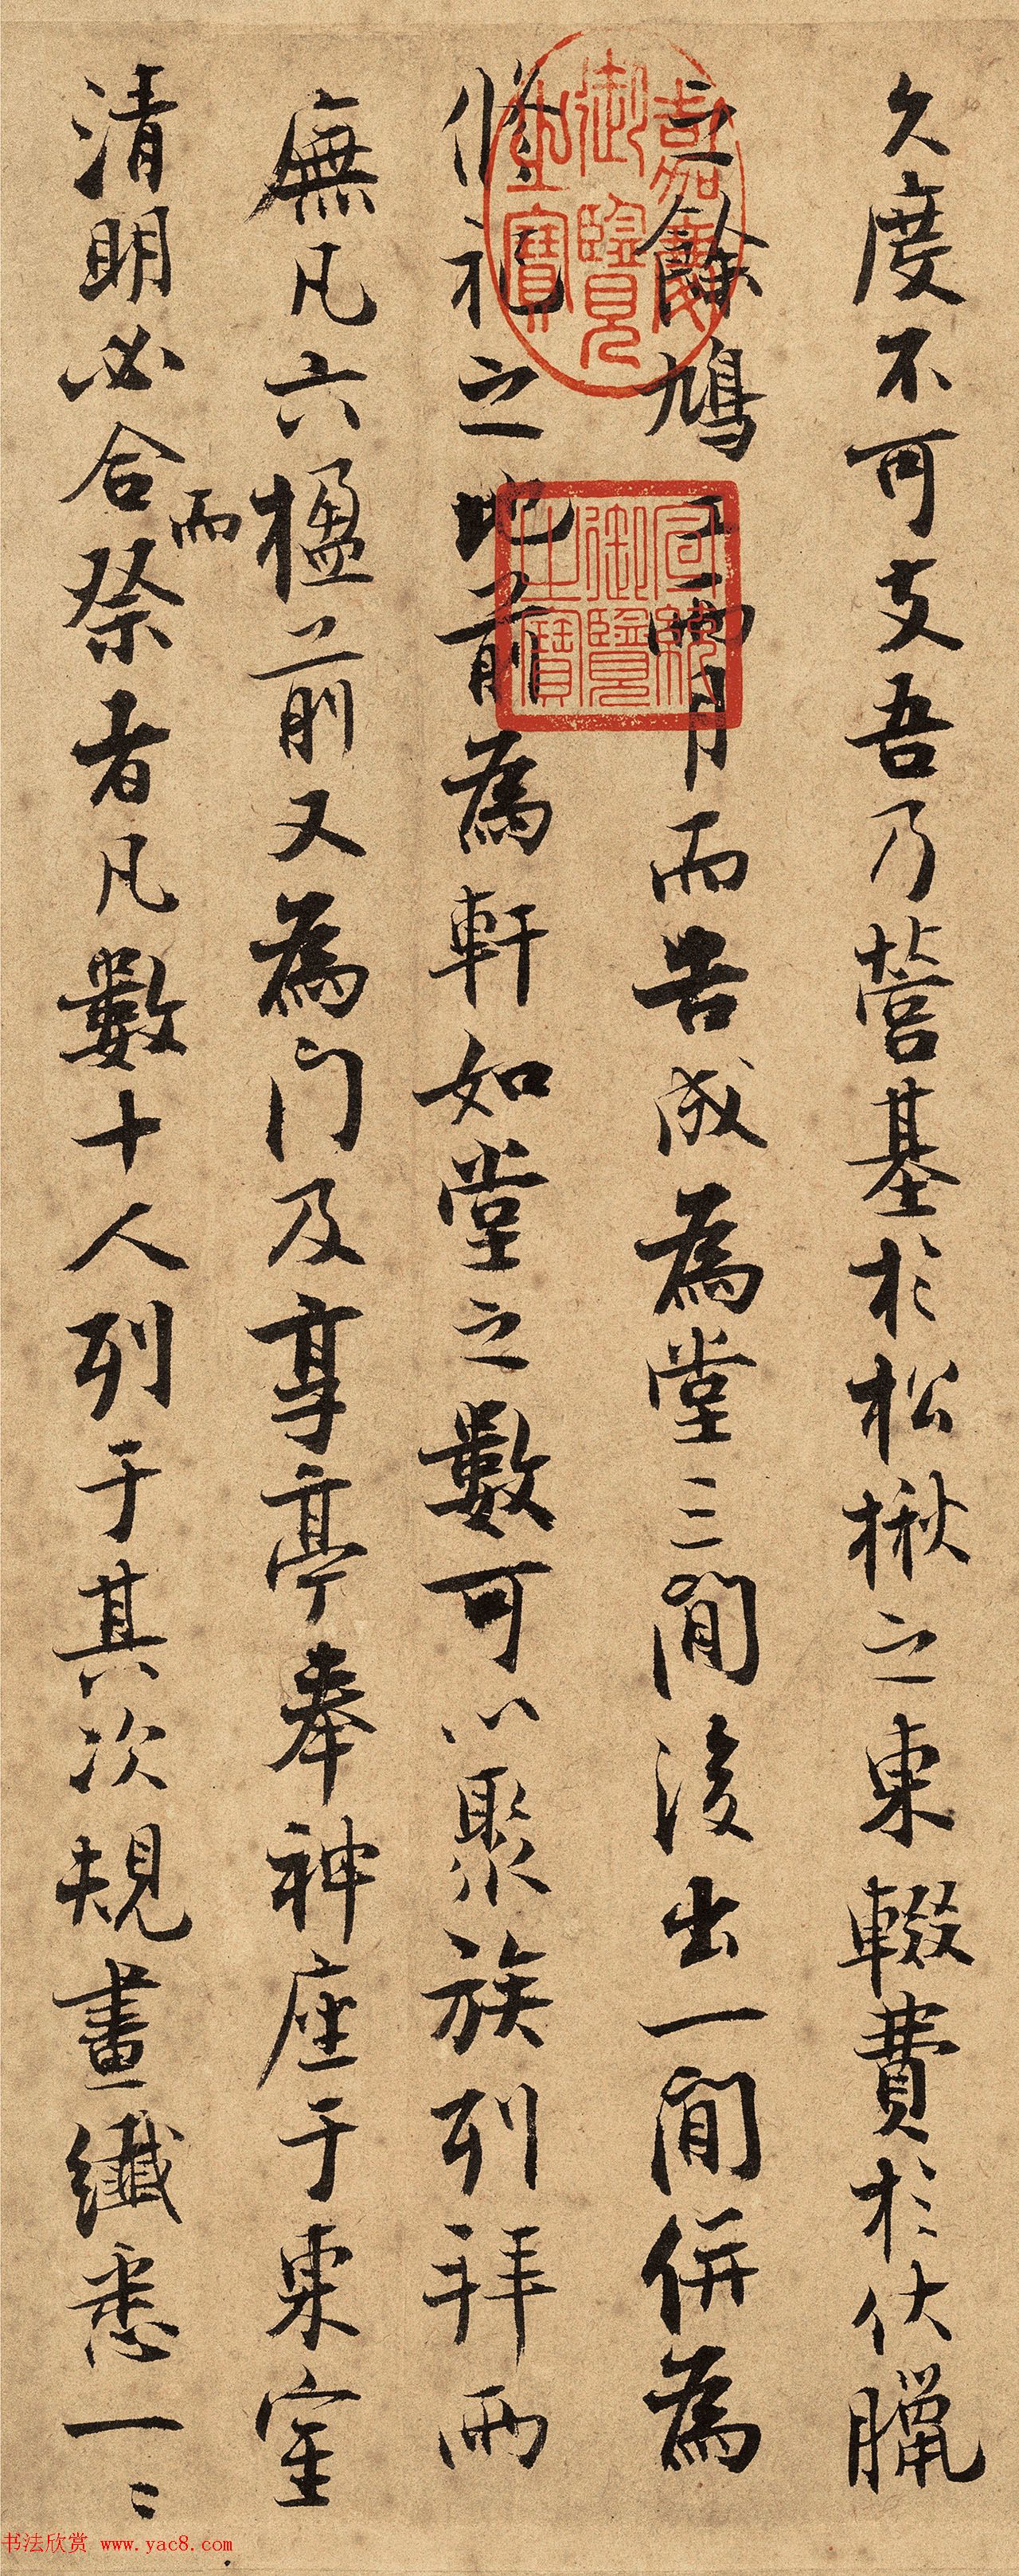 久度不可支吾乃營基於松楸之東輟費於伏臘
之餘鳩工兩月而告成為堂三間後出一間併為
修祀之地前為軒如堂之數可以聚族列拜兩
廡凡六楹前又為門及享亭奉神座于東室
清明必合而祭者凡數十人列于其次規畫纖悉一〻
嘉慶御覽之寶
宣統御覽之寶
书法欣赏 www.yac8.com